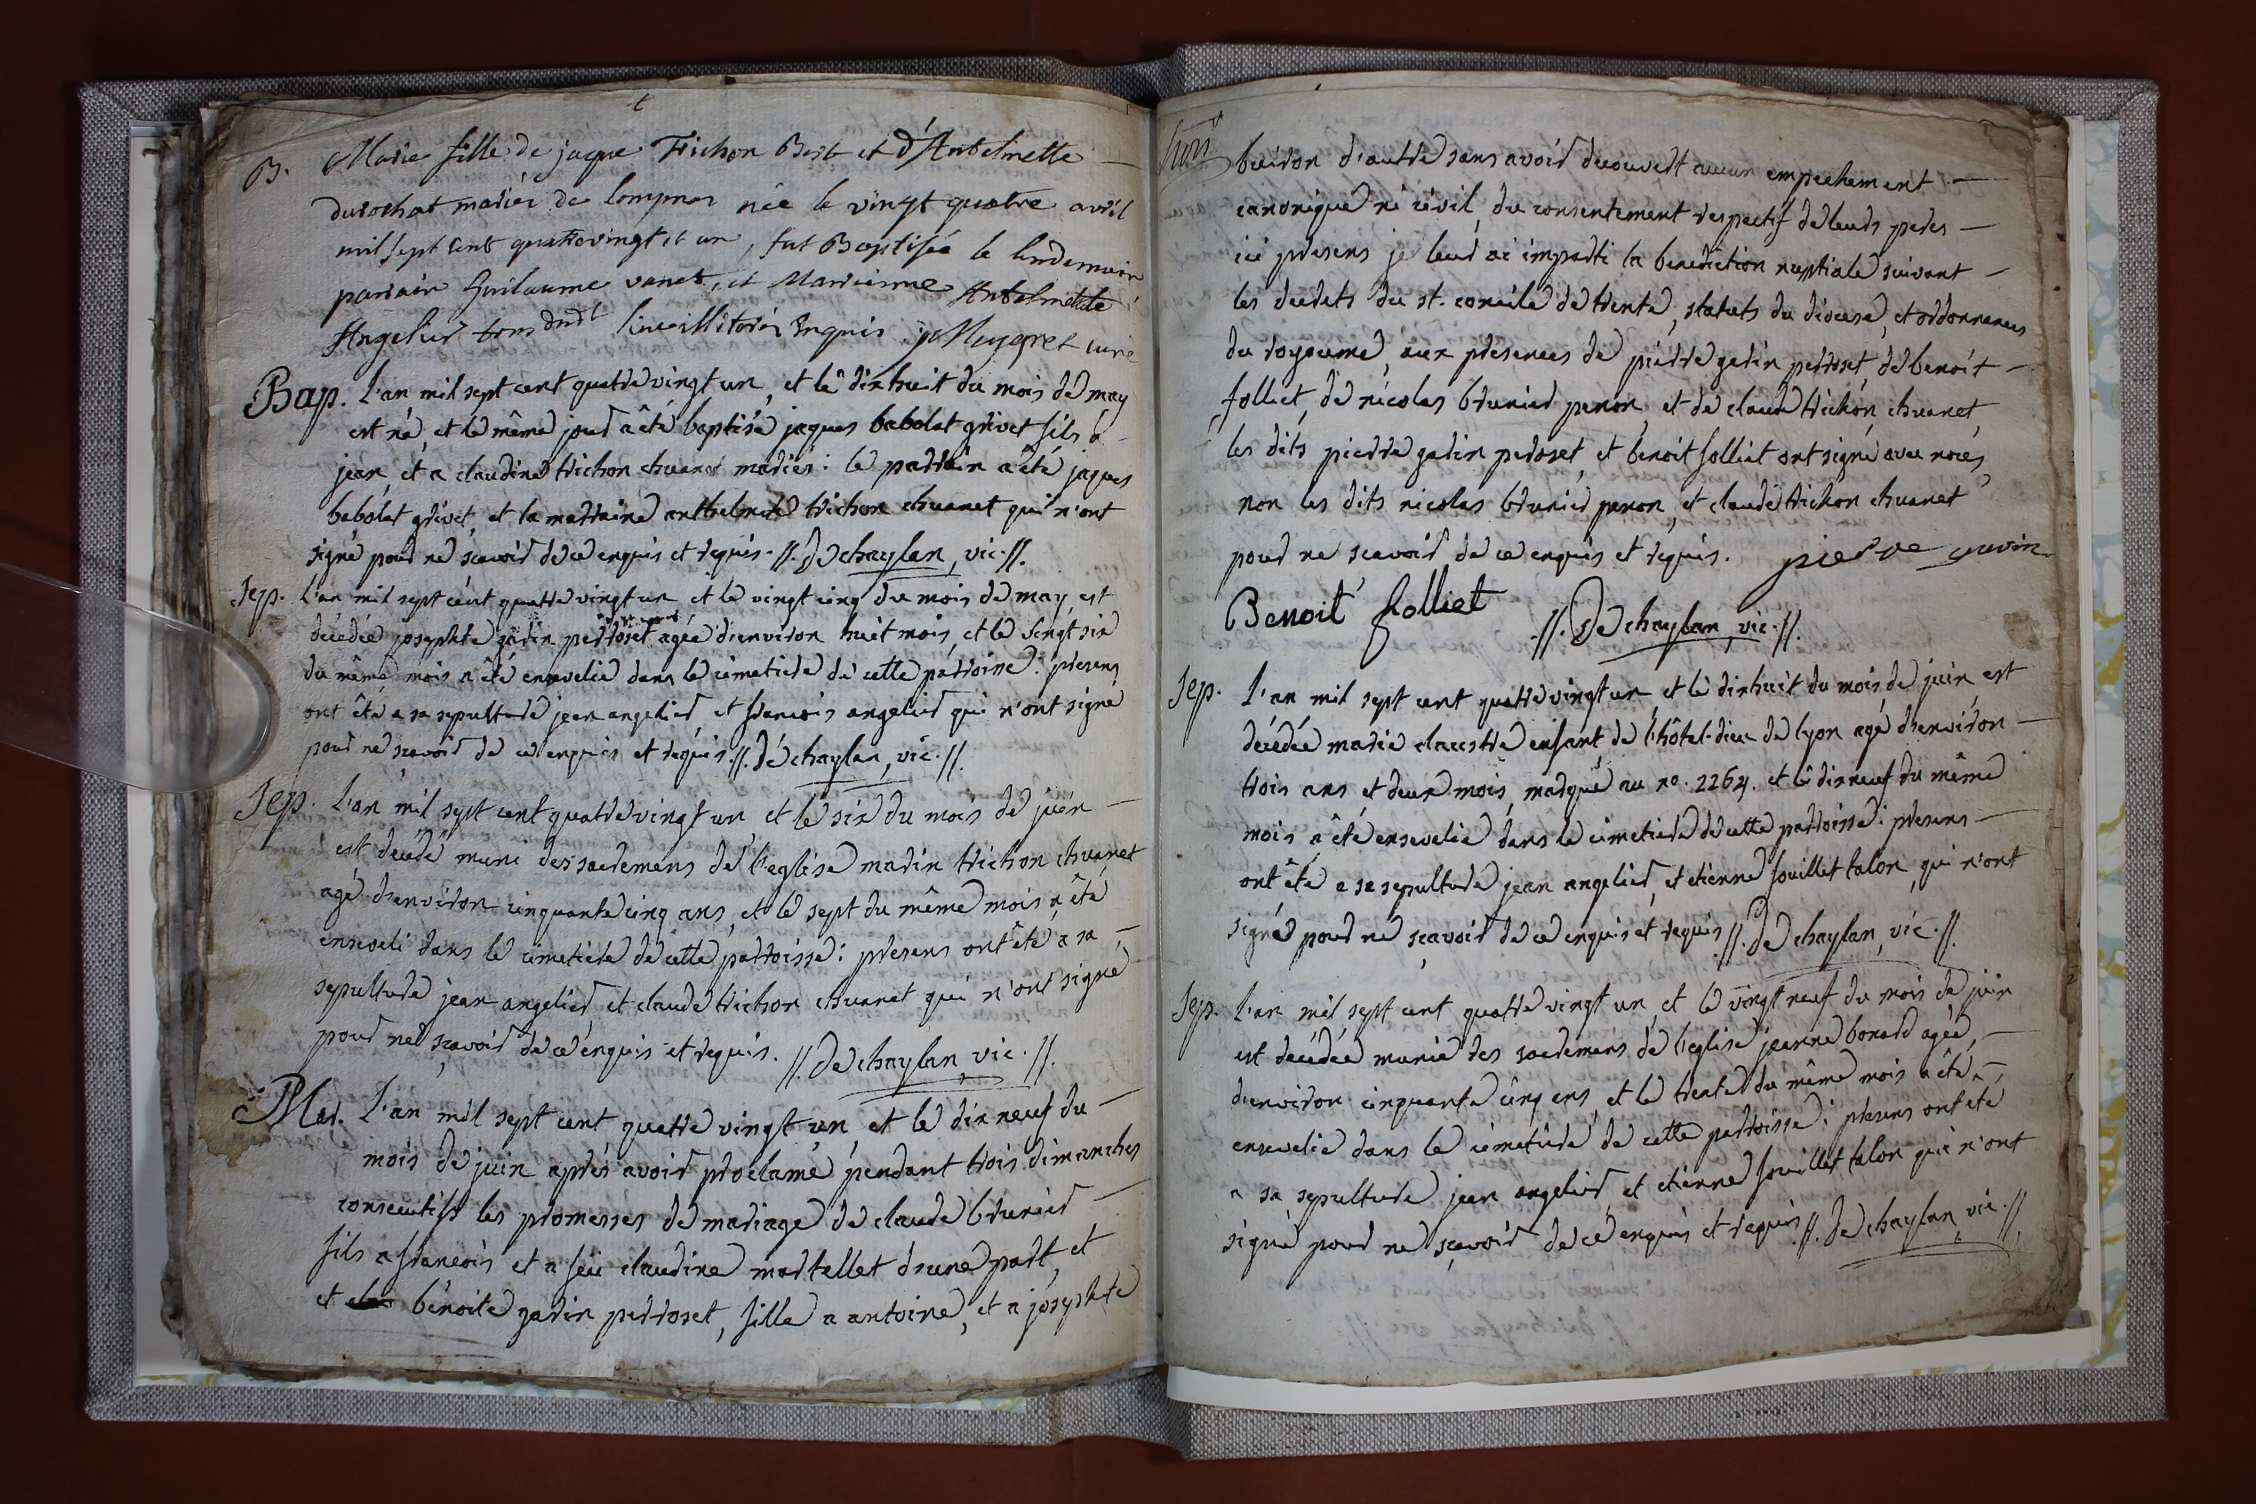 B. Marie fille de jaque Trichon Bert et d'Antelmette
durochat mariés de lompnes née le vingt quatre avril
mil sept cent quatrevingt et un, fut Baptisée le lendemain
parrain Guilaume vanet, et Marienne Antelmette
Angelier tous deux illitérés enquis j Muygret curé
Bap. L'an mil sept cent quatre vingt un, et le dixhuit du mois de may
est né, et le même jour a été baptisé jaques babolat grivet fils à
jean, et a claudine trichon chuanet mariés : le parrain a été jaques
babolat grivet, et la marraine anthelmete trichon chuanet qui n'ont
signé pour ne scavoir de ce enquis et requis. //. De chaylan, vic. //.
Sep. L'an mil sept cent quatre vingt un et le vingt cinq du mois de may est
décédée josephte garin perroset agée d'environ huit mois, et le vingt six
du même mois a été ensevelie dans le cimetiere de cette parroisse : presens
ont été a sa sepulture jean angelier et francois angelier qui n'ont signé
pour ne scavoir de ce enquis et requis. //. De chaylan, vic. //.
Sep. L'an mil sept cent quatre vingt un et le six du mois de juin
est décédé muni des sacremens de l'eglise marin trichon chuanet
agé d'environ cinquante cinq ans, et le sept du même mois a été
enseveli dans le cimetiere de cette parroisse : presens ont été a sa
sepulture jean angelier et claude trichon chuanet qui n'ont signé
pour ne scavoir de ce enquis et requis. //. De chaylan, vic. //.
Mar. L'an mil sept cent quatre vingt un, et le dix neuf du
mois de juin aprés avoir proclamé pendant trois dimanches
consecutifs les promesses de mariage de claude brunier
fils a francois et a feüe claudine martellet d'une part, et
et benoite garin perroset, fille a antoine, et a josephte
buiron d'autre sans avoir decouvert aucun empechement
canonique ni civil, du consentement respectif de leurs peres
ici presens je leur ai imparti la benediction nuptiale suivant
les decrets du st. concile de trente, statuts du diocese, et ordonnances
du royaume, aux presences de pierre garin perroset, de benoit
folliet, de nicolas brunier peron et de claude trichon chuanet,
les dits pierre garin peroset, et benoit folliet ont signé avec nous,
non les dits nicolas brunier peron, et claude trichon chuanet
pour ne scavoir de ce enquis et requis. pierre garin
Benoit folliet //. De chaylan, vic. //.
Sep. L'an mil sept cent quatre vingt un et le dixhuit du mois de juin est
décédée marie claustre enfant de l'hôtel-dieu de lyon agé d'environ
trois ans et deux mois, marqué au no. 2264. et le dixneuf du même
mois a été ensevelie dans le cimetiere de cette parroisse : presens
ont été a sa sepulture jean angelier, et etienne souillet talon, qui n'ont
signé pour ne scavoir de ce enquis et requis //. De chaylan, vic. //.
Sep. L'an mil sept cent quatre vingt un et le vingt neuf du mois de juin
est décédée munie des sacremens de l'eglise jeanne bonard agée,
d'environ cinquante cinq ans, et le trente du même mois a été
ensevelie dans le cimetiere de cette parroisse : presens ont été
a sa sepulture jean angelier, et etienne souillet talon qui n'ont
signé pour ne scavoir de ce enquis et requis //. De chaylan, vic. //.